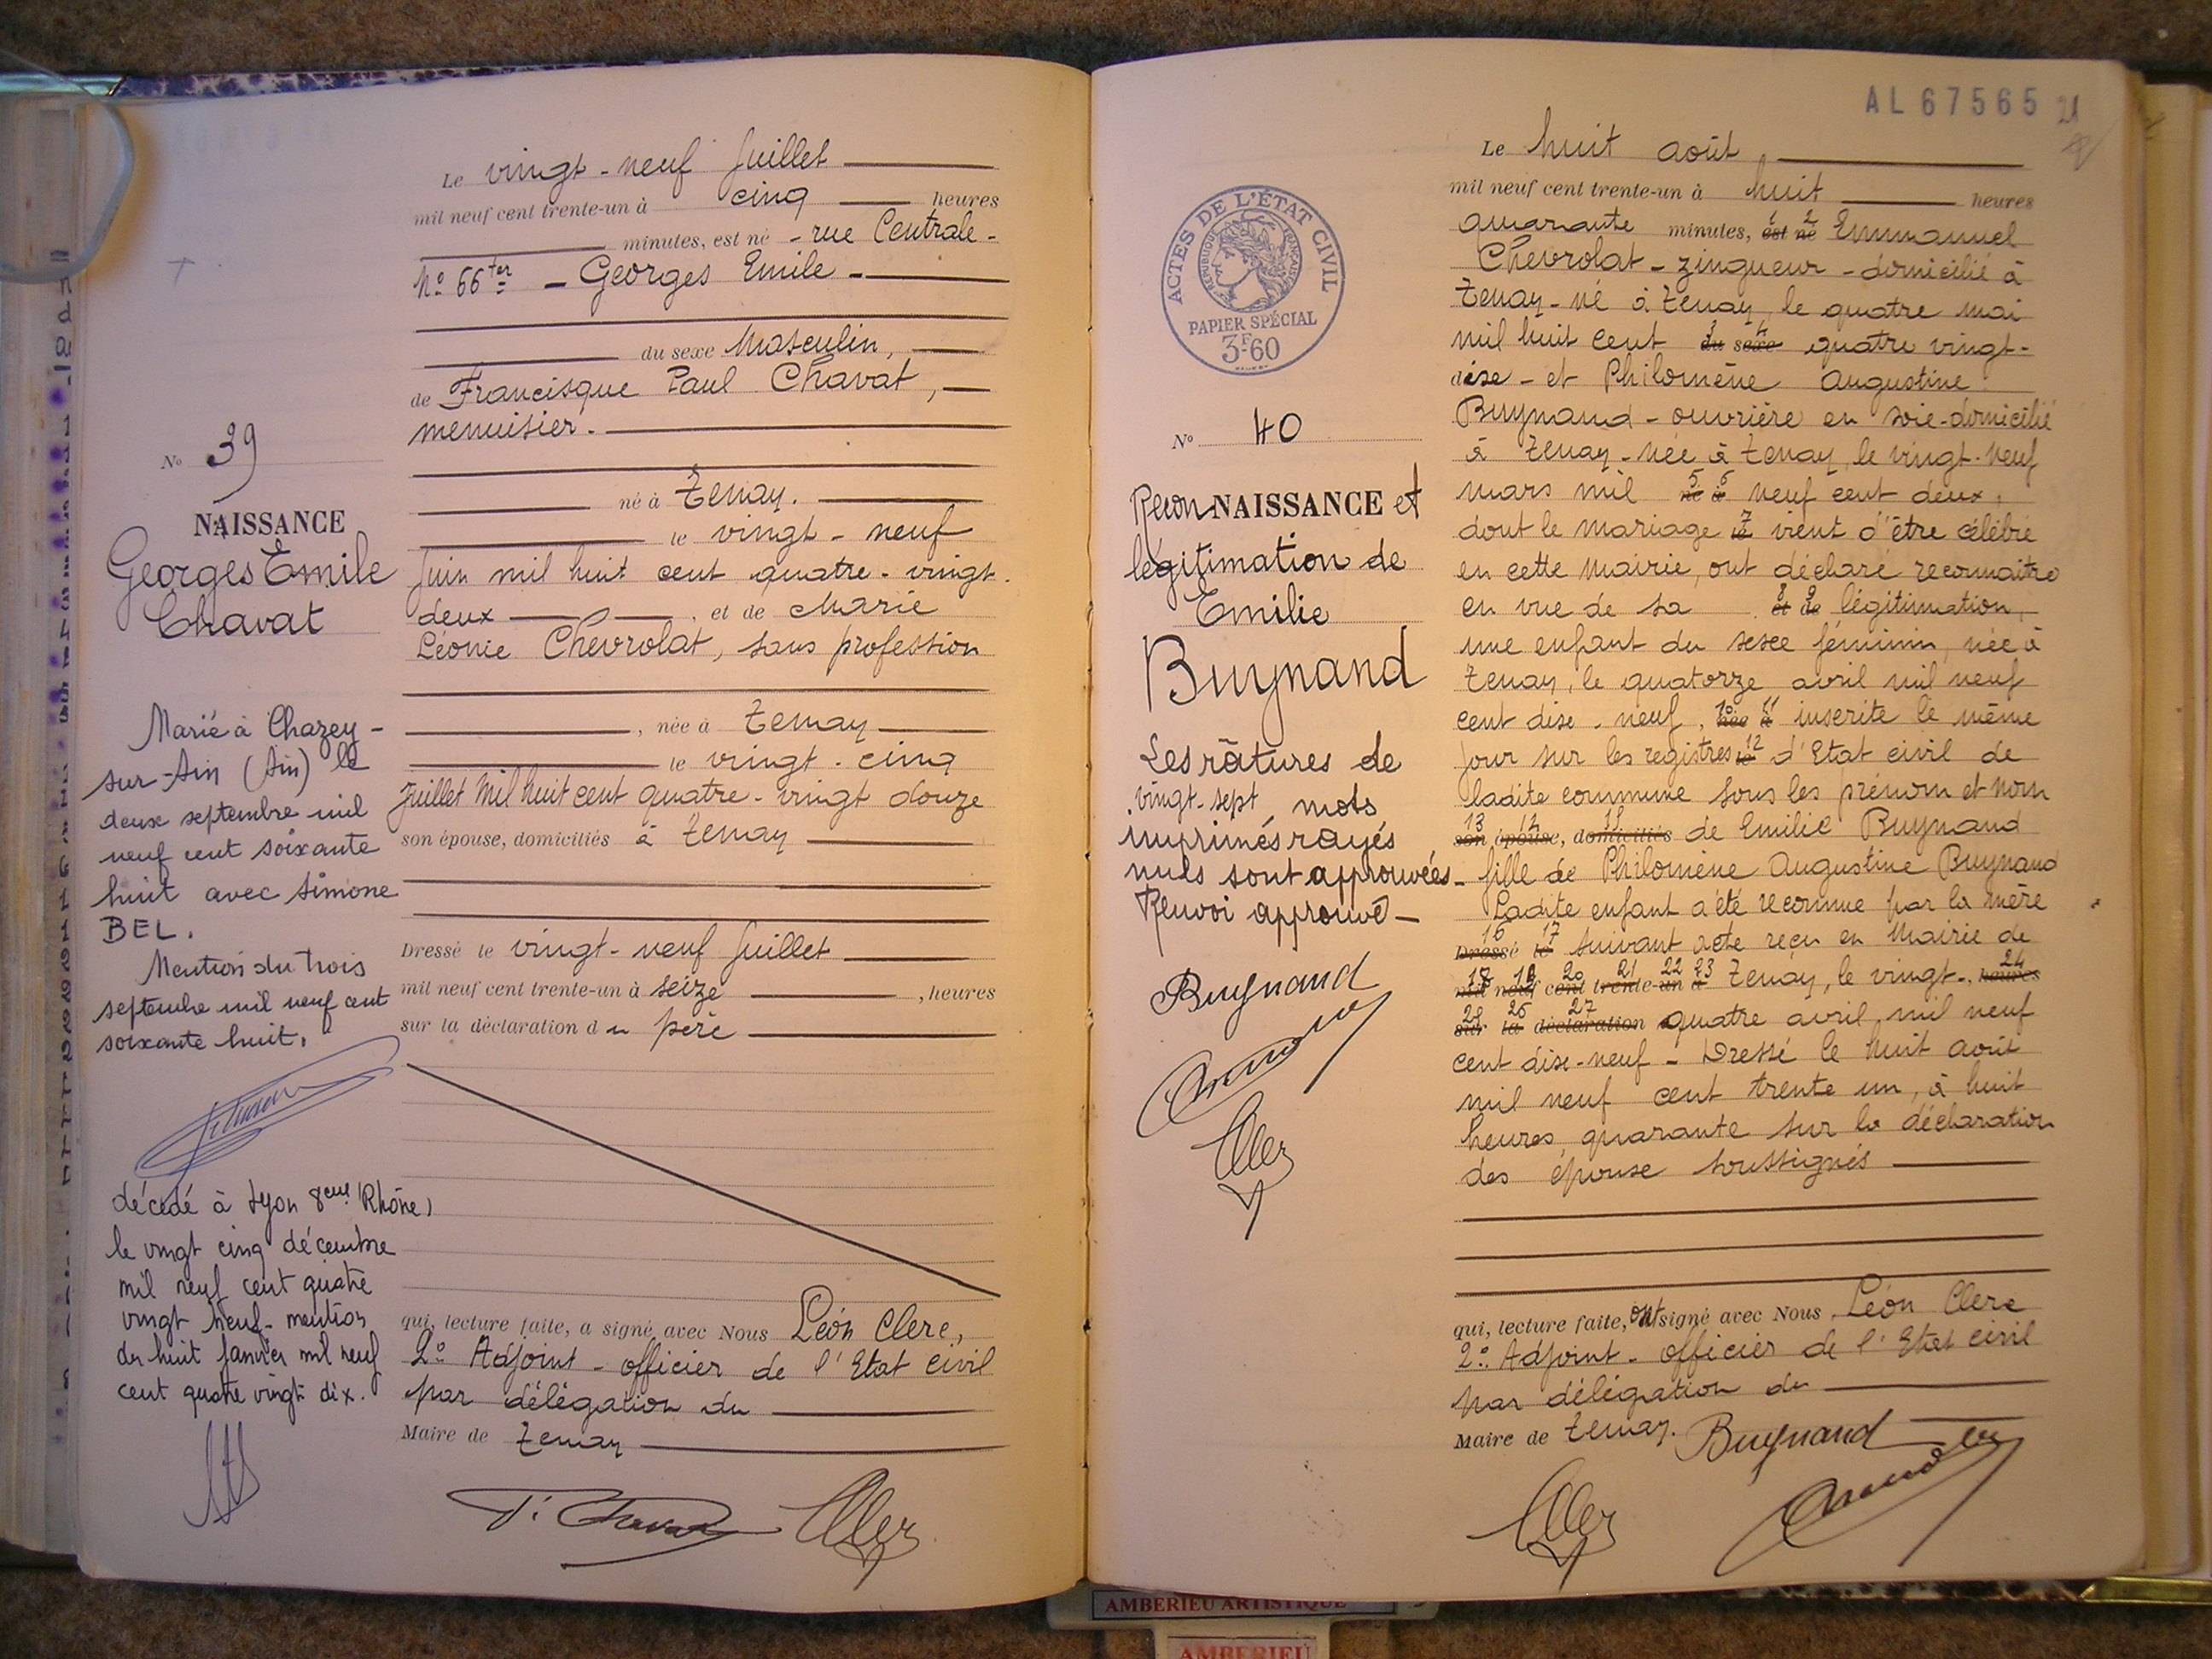 Le vingt-neuf Juillet
mil neuf cent trente-un à cinq heures
minutes, est né - rue Centrale -
No 66 ter - Georges Emile -
du sexe Masculin,
de Francisque Paul Chavat,
menuisier.
né à Tenay.
le vingt-neuf
Juin mil huit cent quatre-vingt-
deux, et de Marie
Léonie Chevrolat, sans profession
, née à Tenay
le vingt-cinq
Juillet Mil huit cent quatre-vingt douze
son épouse, domiciliés à Tenay
Dressé le vingt-neuf Juillet
mil neuf cent trente-un à seize, heures
sur la déclaration du père
qui, lecture faite, a signé avec Nous Léon Clerc,
2e Adjoint - officier de l'Etat civil
par délégation du
Maire de Tenay
No 39
NAISSANCE
Georges Emile
Chavat
Marié à Chazey-
sur-Ain (Ain) le
deux septembre mil
neuf cent soixante
huit avec Simone
BEL.
Mention du trois
septembre mil neuf cent
soixante huit.
décédé à Lyon 8eme (Rhône)
le vingt cinq décembre
mil neuf cent quatre
vingt neuf - mention
du huit Janvier mil neuf
cent quatre vingt dix.
AL 67565
21
ACTES DE L'ÉTAT CIVIL
RÉPUBLIQUE FRANÇAISE
PAPIER SPÉCIAL
3F60
No 40
ReconNAISSANCE et
légitimation de
Emilie
Buynand
Les râtures de
vingt-sept mots
imprimés rayés
nuls sont approuvées -
Renvoi approuvé -
Buynand
Le huit août
mil neuf cent trente-un à huit heures
quarante minutes, est né Emmanuel
Chevrolat - zingueur - domicilié à
Tenay - né à Tenay, le quatre mai
mil huit cent du sexe quatre vingt-
dixe - et Philomène Augustine
Buynand - ouvrière en soie - domicilié
à Tenay - née à Tenay, le vingt-neuf
mars mil né à neuf cent deux,
dont le mariage le vient d'être célébré
en cette Mairie, ont déclaré reconnaitre
en vue de sa et de légitimation,
une enfant du sexe féminin, née à
Tenay, le quatorze avril mil neuf
cent dixe-neuf, née à inscrite le même
jour sur les registres le d'Etat civil de
ladite commune sous les prénom et nom
son épouse, domiciliés de Emilie Buynand
fille de Philomène Augustine Buynand
Ladite enfant a été reconnue par la mère
Dressé le suivant acte reçu en Mairie de
mil neuf cent trente-un à Tenay, le vingt- heures
sur la déclaration quatre avril mil neuf
cent dixe-neuf - Dressé le huit août
mil neuf cent trente un, à huit
heures quarante sur la déclaration
des épouse soussignés
qui, lecture faite, ont signé avec Nous Léon Clerc
2e Adjoint - officier de l'Etat civil
par délégation du
Maire de Tenay.
Buynand
AMBERIEU ARTISTIQUE
AMBERIEU